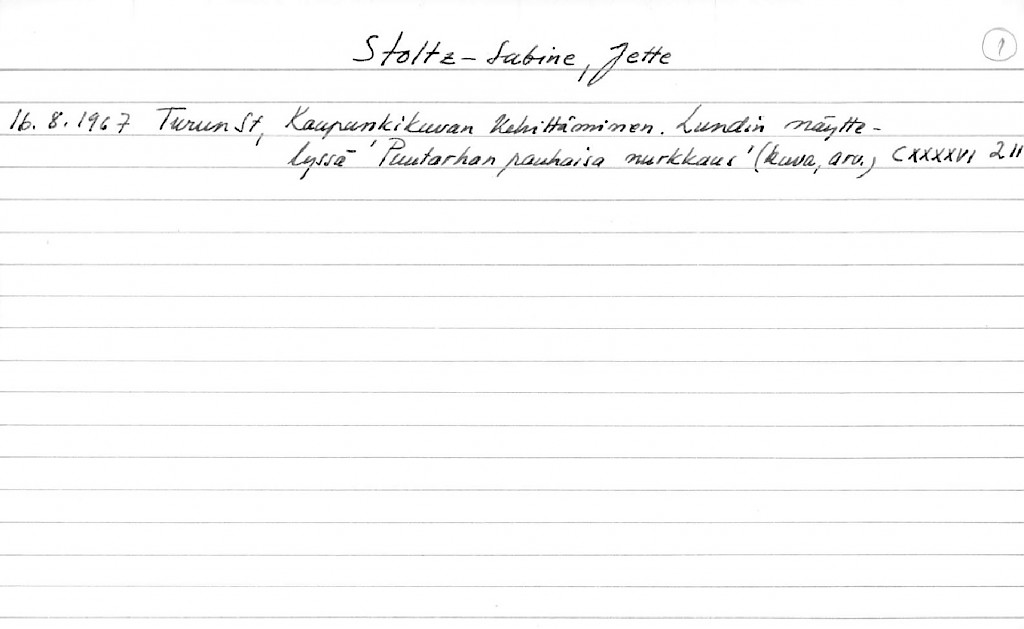 Stoltz-Sabine, Jette
1
16.8.1967 Turun St, Kaupunkikuvan kehittäminen. Lundin näytte-
lyssä 'Puutarhan rauhaisa nurkkaus' (kuva, arv.) CXXXXVI 211